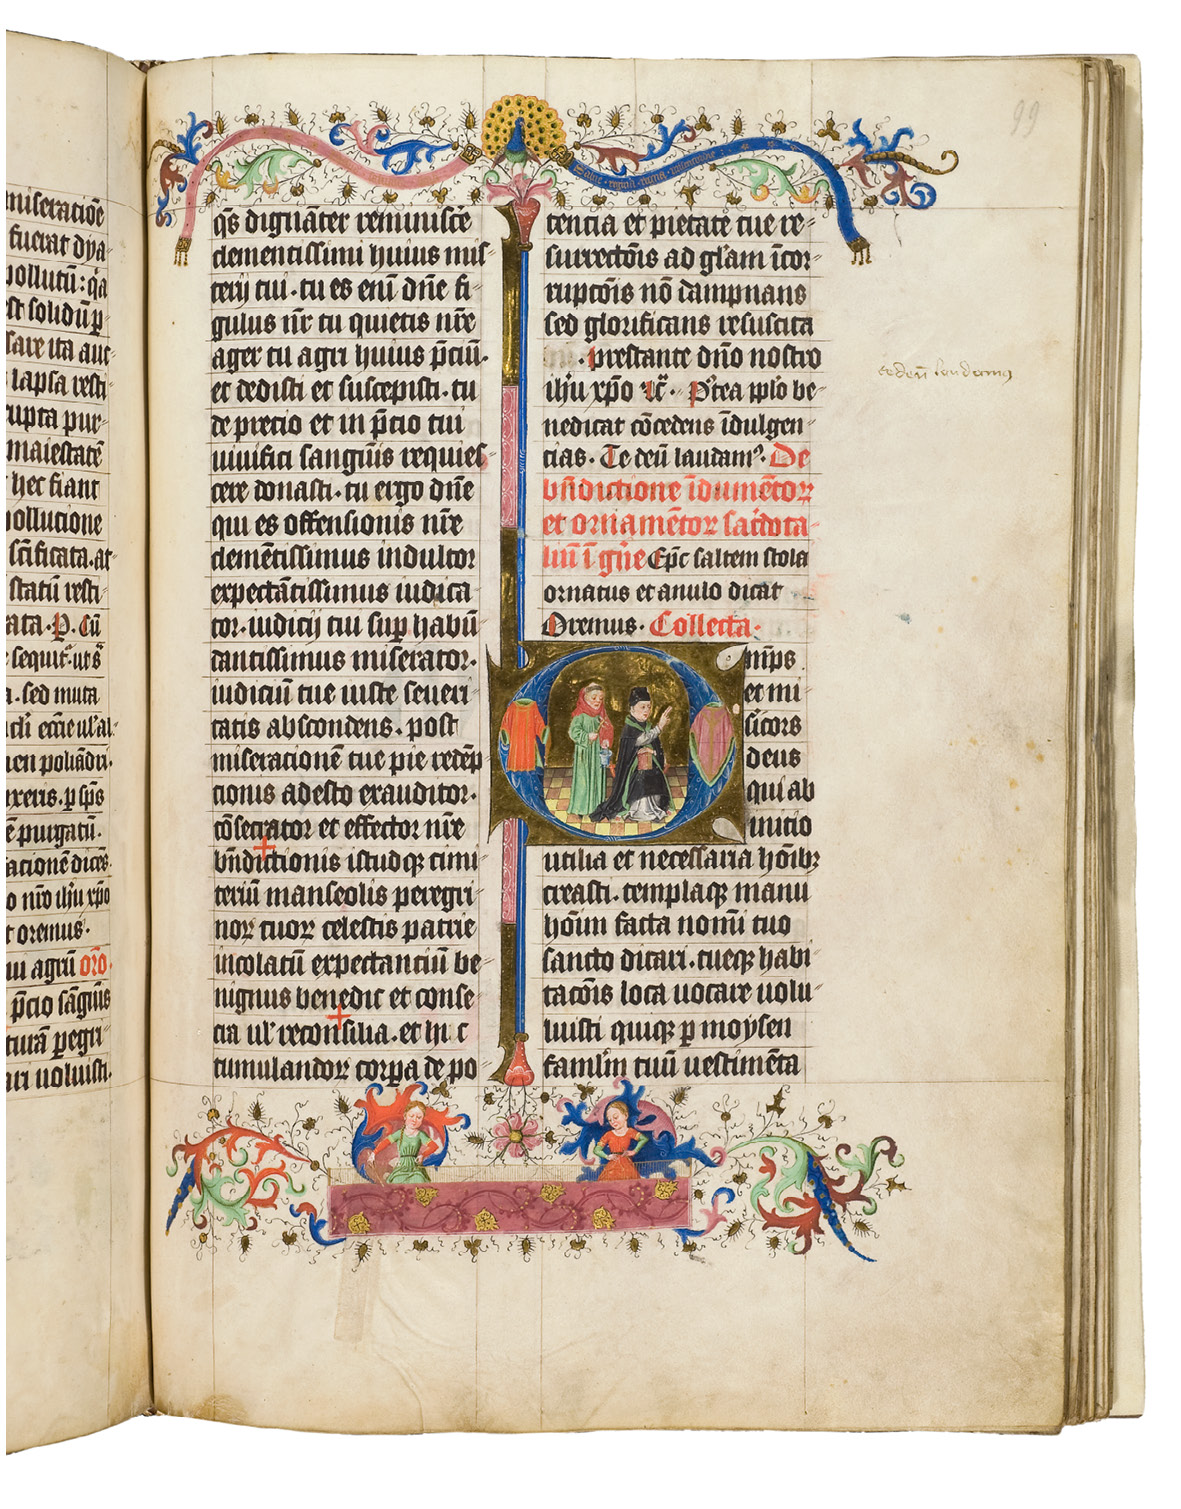 miseratiōe
fuerat dya-
pollutū: q̄a
est solidū p̄
sare ita aut-
lapsa resti
rupta pur-
maiestatē
hec fiant
pollutione
sc̄ificata. at-
statū resti-
ata. P. Cū
sequit᷑ ut s̄
a. sed muta
ien poliādri.
ē purgatū.
atonē dicēs.
o nr̄o ih̄u xp̄o
oremus.
ui agrū or̄o.
p̄cio sāguīs
turā pegri
ari uoluisti.
99
qs̄ dignāter reminisc̄e
clementissimi huius mis-
terij tui. tu es enī dn̄e fi-
gulus nr̄ tu quietis nr̄e
ager tu agri huius p̄ciū.
et dedisti et suscepisti. tu
de precio et in p̄cio tui
uiuifici sanguīs requies-
cere donasti. tu ergo dn̄e
qui es offensionis nr̄e
clemētissimus indultor
expectātissimus iudica
tor. iudicij tui sup habū
dantissimus miserator.
iudiciū tue iuste seueri-
tatis abscondens. post
miserationē tue pie redēp-
tionis adesto exauditor.
cōsecrator et effector nr̄e
bn̄dictionis istudq̄ cimi-
teriū manseolis peregri-
noꝝ tuoꝝ celestis patrie
incolatū expectantiū be-
nignus benedic et conse
cra ul̄ reconsilia. et hi c
tumulandoꝝ corp̄a de po
tencia et pietate tue re-
surrectōis ad gl̄am īcor-
ruptōis nō dampnans
sed glorificans resuscita
. prestante dn̄o nostro
ih̄u xp̄o ⁊c̄. P᷒tea pp̄lo be-
nedicat cōcedens īdulgen-
cias. Te deū laudam᷒. De
bn̄dictione īdumētoꝝ
et ornamētoꝝ sac̄dota-
liū ī gn̄e Ep̄c saltem stola
ornatus et anulo dicat
Oremus. Collecta.
mīps
et mi-
s̄icors
deus
qui ab
initio
utilia et necessaria hōibꝫ
creasti. templaq̄ manu
hōim facta nomī tuo
sancto dicari. tueq̄ habi-
tacōis loca uocare uolu-
luisti quiq̄ p moysen
famlm̄ tuū uestimēta
te deū laudamus